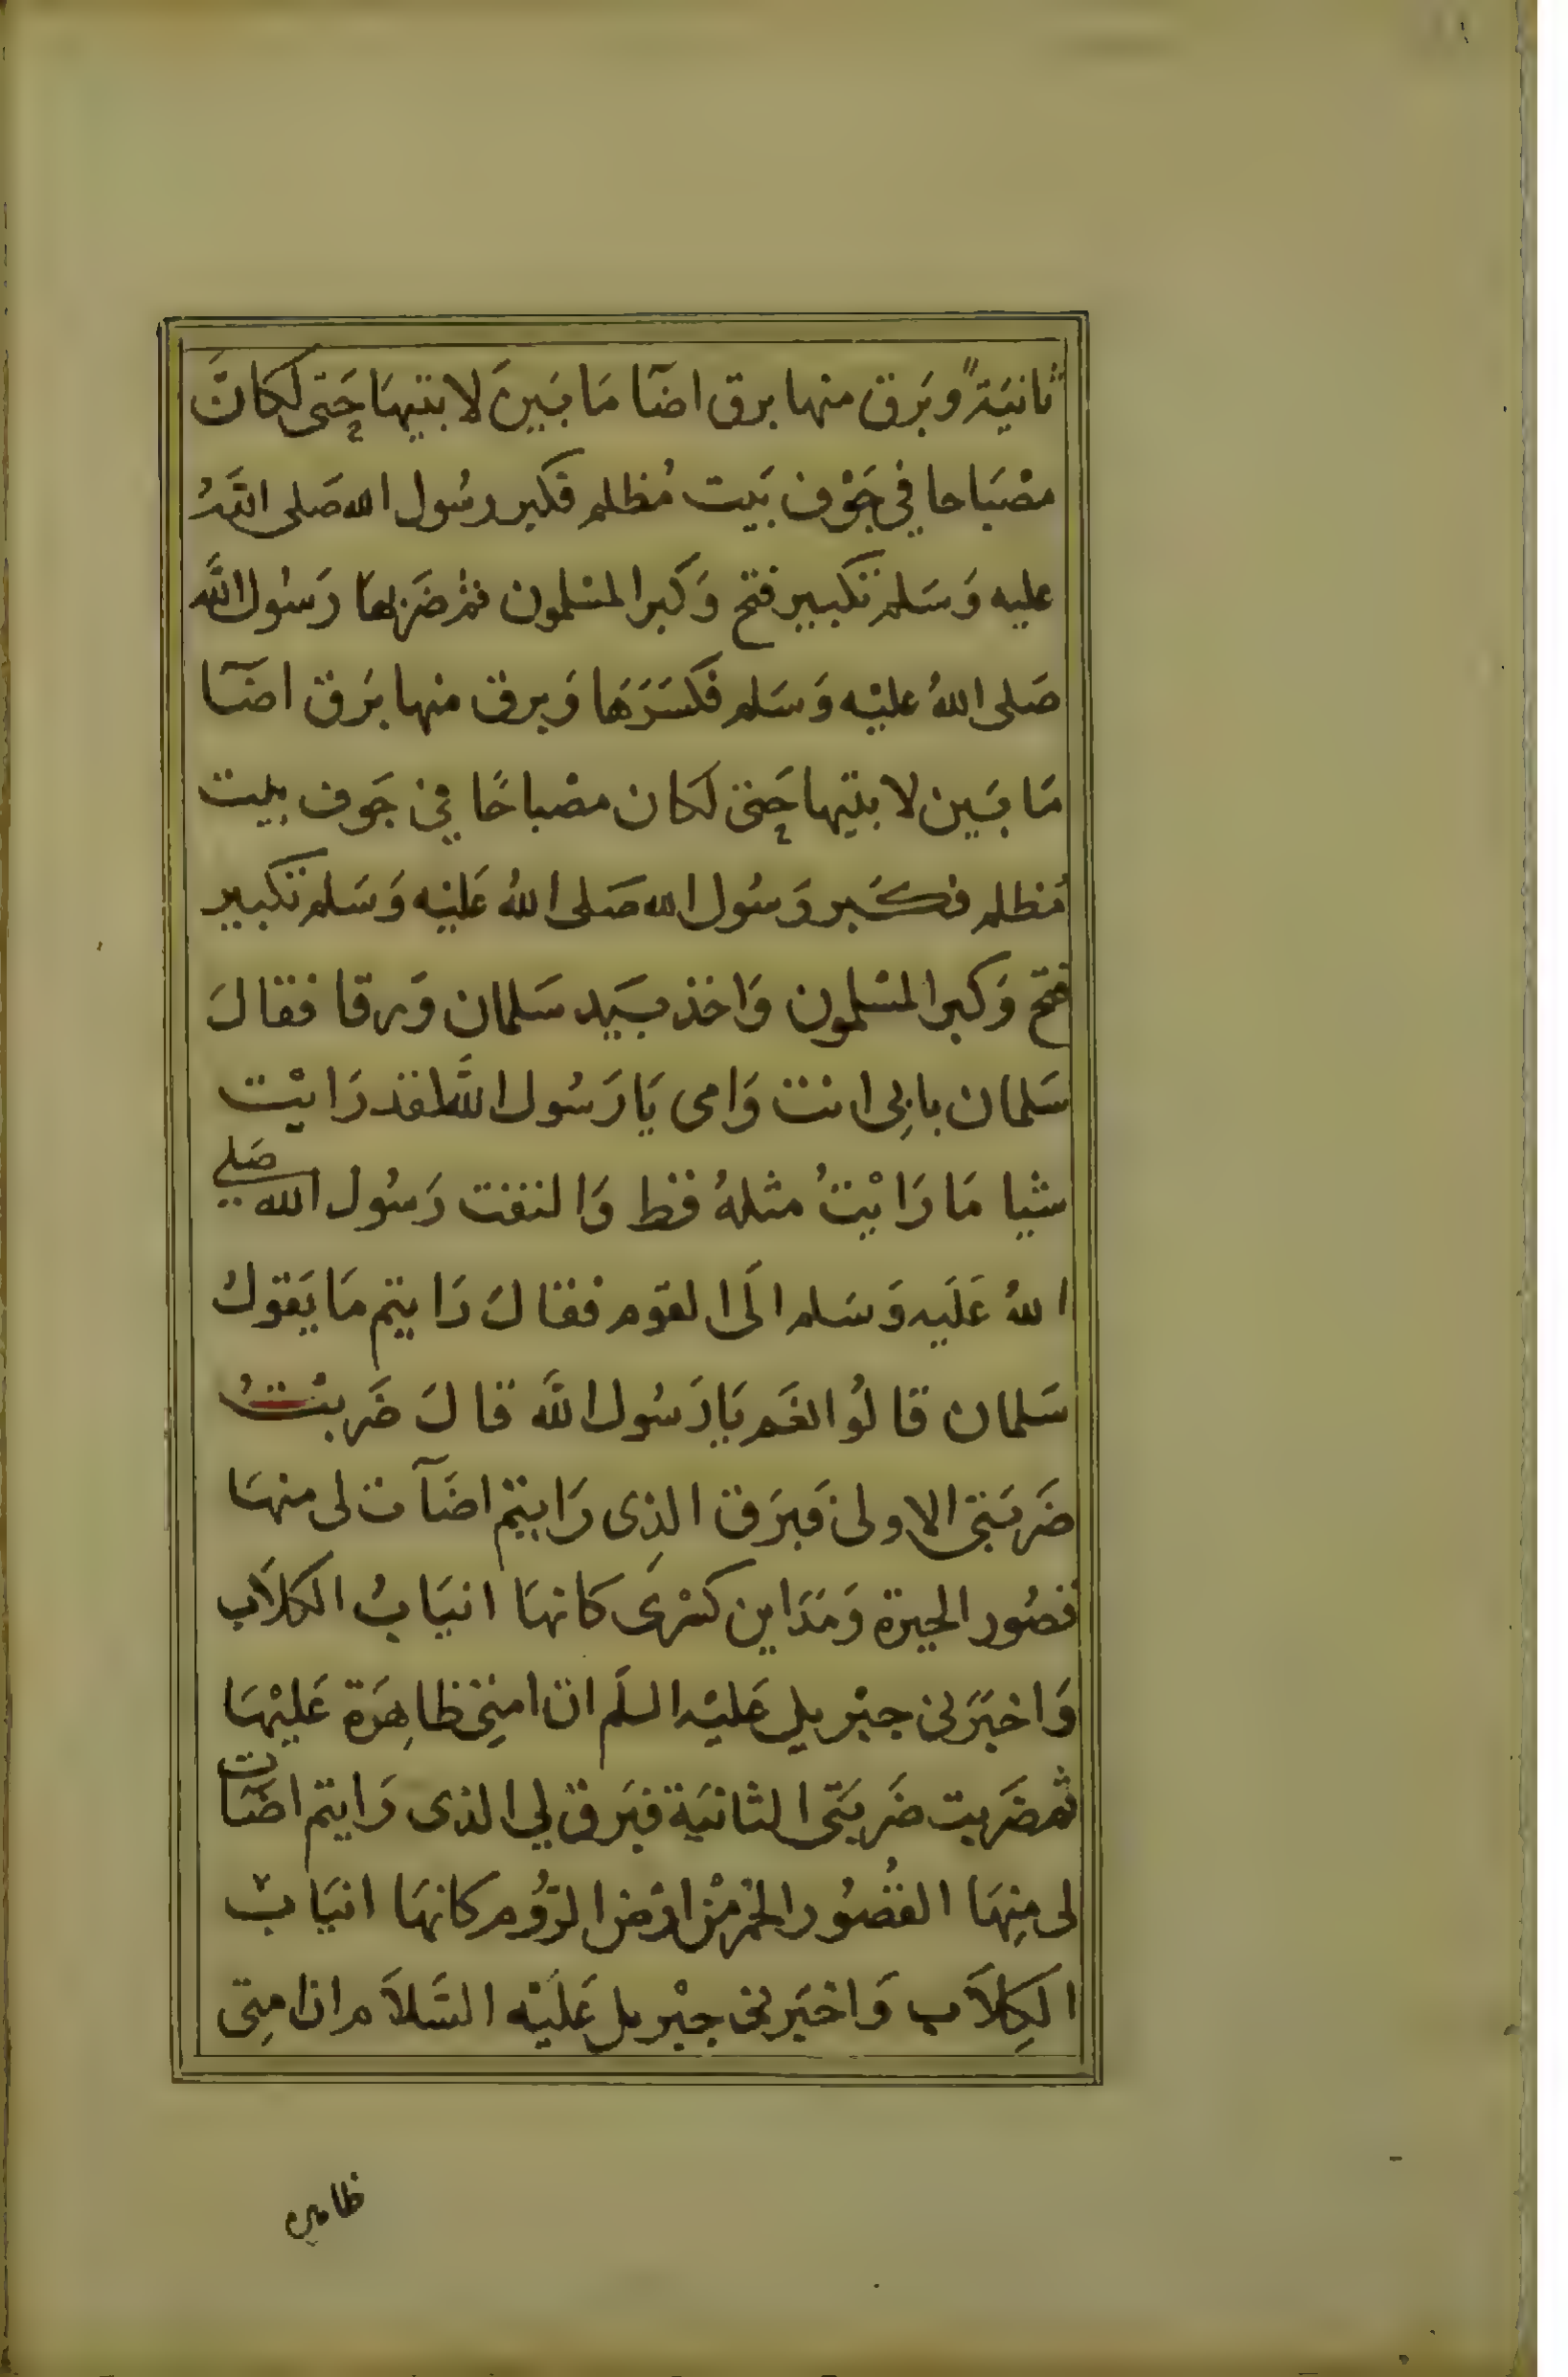 ثانيَةً وبَرق منها برق اضآ مَا بَينَ لابتيهَا حَتى لكانَّ
مصْبَاحا في جَوْف بَيت مُظلم فكبر رسُول الله صَلى اللهُ
عليه وَسَلم تكبير فتح وَكبر المسْلمون ثم ضَربهَا رَسُول اللَّه
صَلى اللهُ عليْه وَسَلم فكسَرَهَا وَبرق منها بَرق اضَآ
مَا بَين لا بتيها حَتى لكان مصْباحًا في جَوف بيت
مُظلم فكَبر رَسُول الله صَلى اللهُ عَليْه وَسَلم تكبير
فتح وَكبر المسْلمون وَاخذ بيَد سَلمان وَرقا فقالَ
سَلمان بابِى انت وَامى يَا رَسُول اللَّه لقد رَايْت
شيا مَا رَايْتُ مثلهُ قط وَالتفت رَسُول الله صَلى
اللهُ عَلَيه وَسَلم الَى القوم فقالَ رَايتم مَا يَقولُ
سَلمان قالُوا نعَم يَا رَسُول اللَّه قالَ ضَربْتُ
ضَربَتى الاولى فَبرَق الذِى رَايتم اضَآت لى منهَا
قصُور الحيرة وَمَدَاين كسْرَى كانهَا انيَابُ الكلاَب
وَاخبَرَنى جبْريل عَليْه السلَم ان امتِى ظاهِرَة عَليْهَا
ثم ضَربت ضَربَتى الثانيَة فبَرق لي الذى رَايتم اضَات
لى مِنهَا القُصُور الحُمْر مْن ارْض الرُّوم كانهَا انيَابُ
الكِلاَب وَاخبَرنى جبْريل عَليْه السَّلاَم ان امتِى
ظاهره